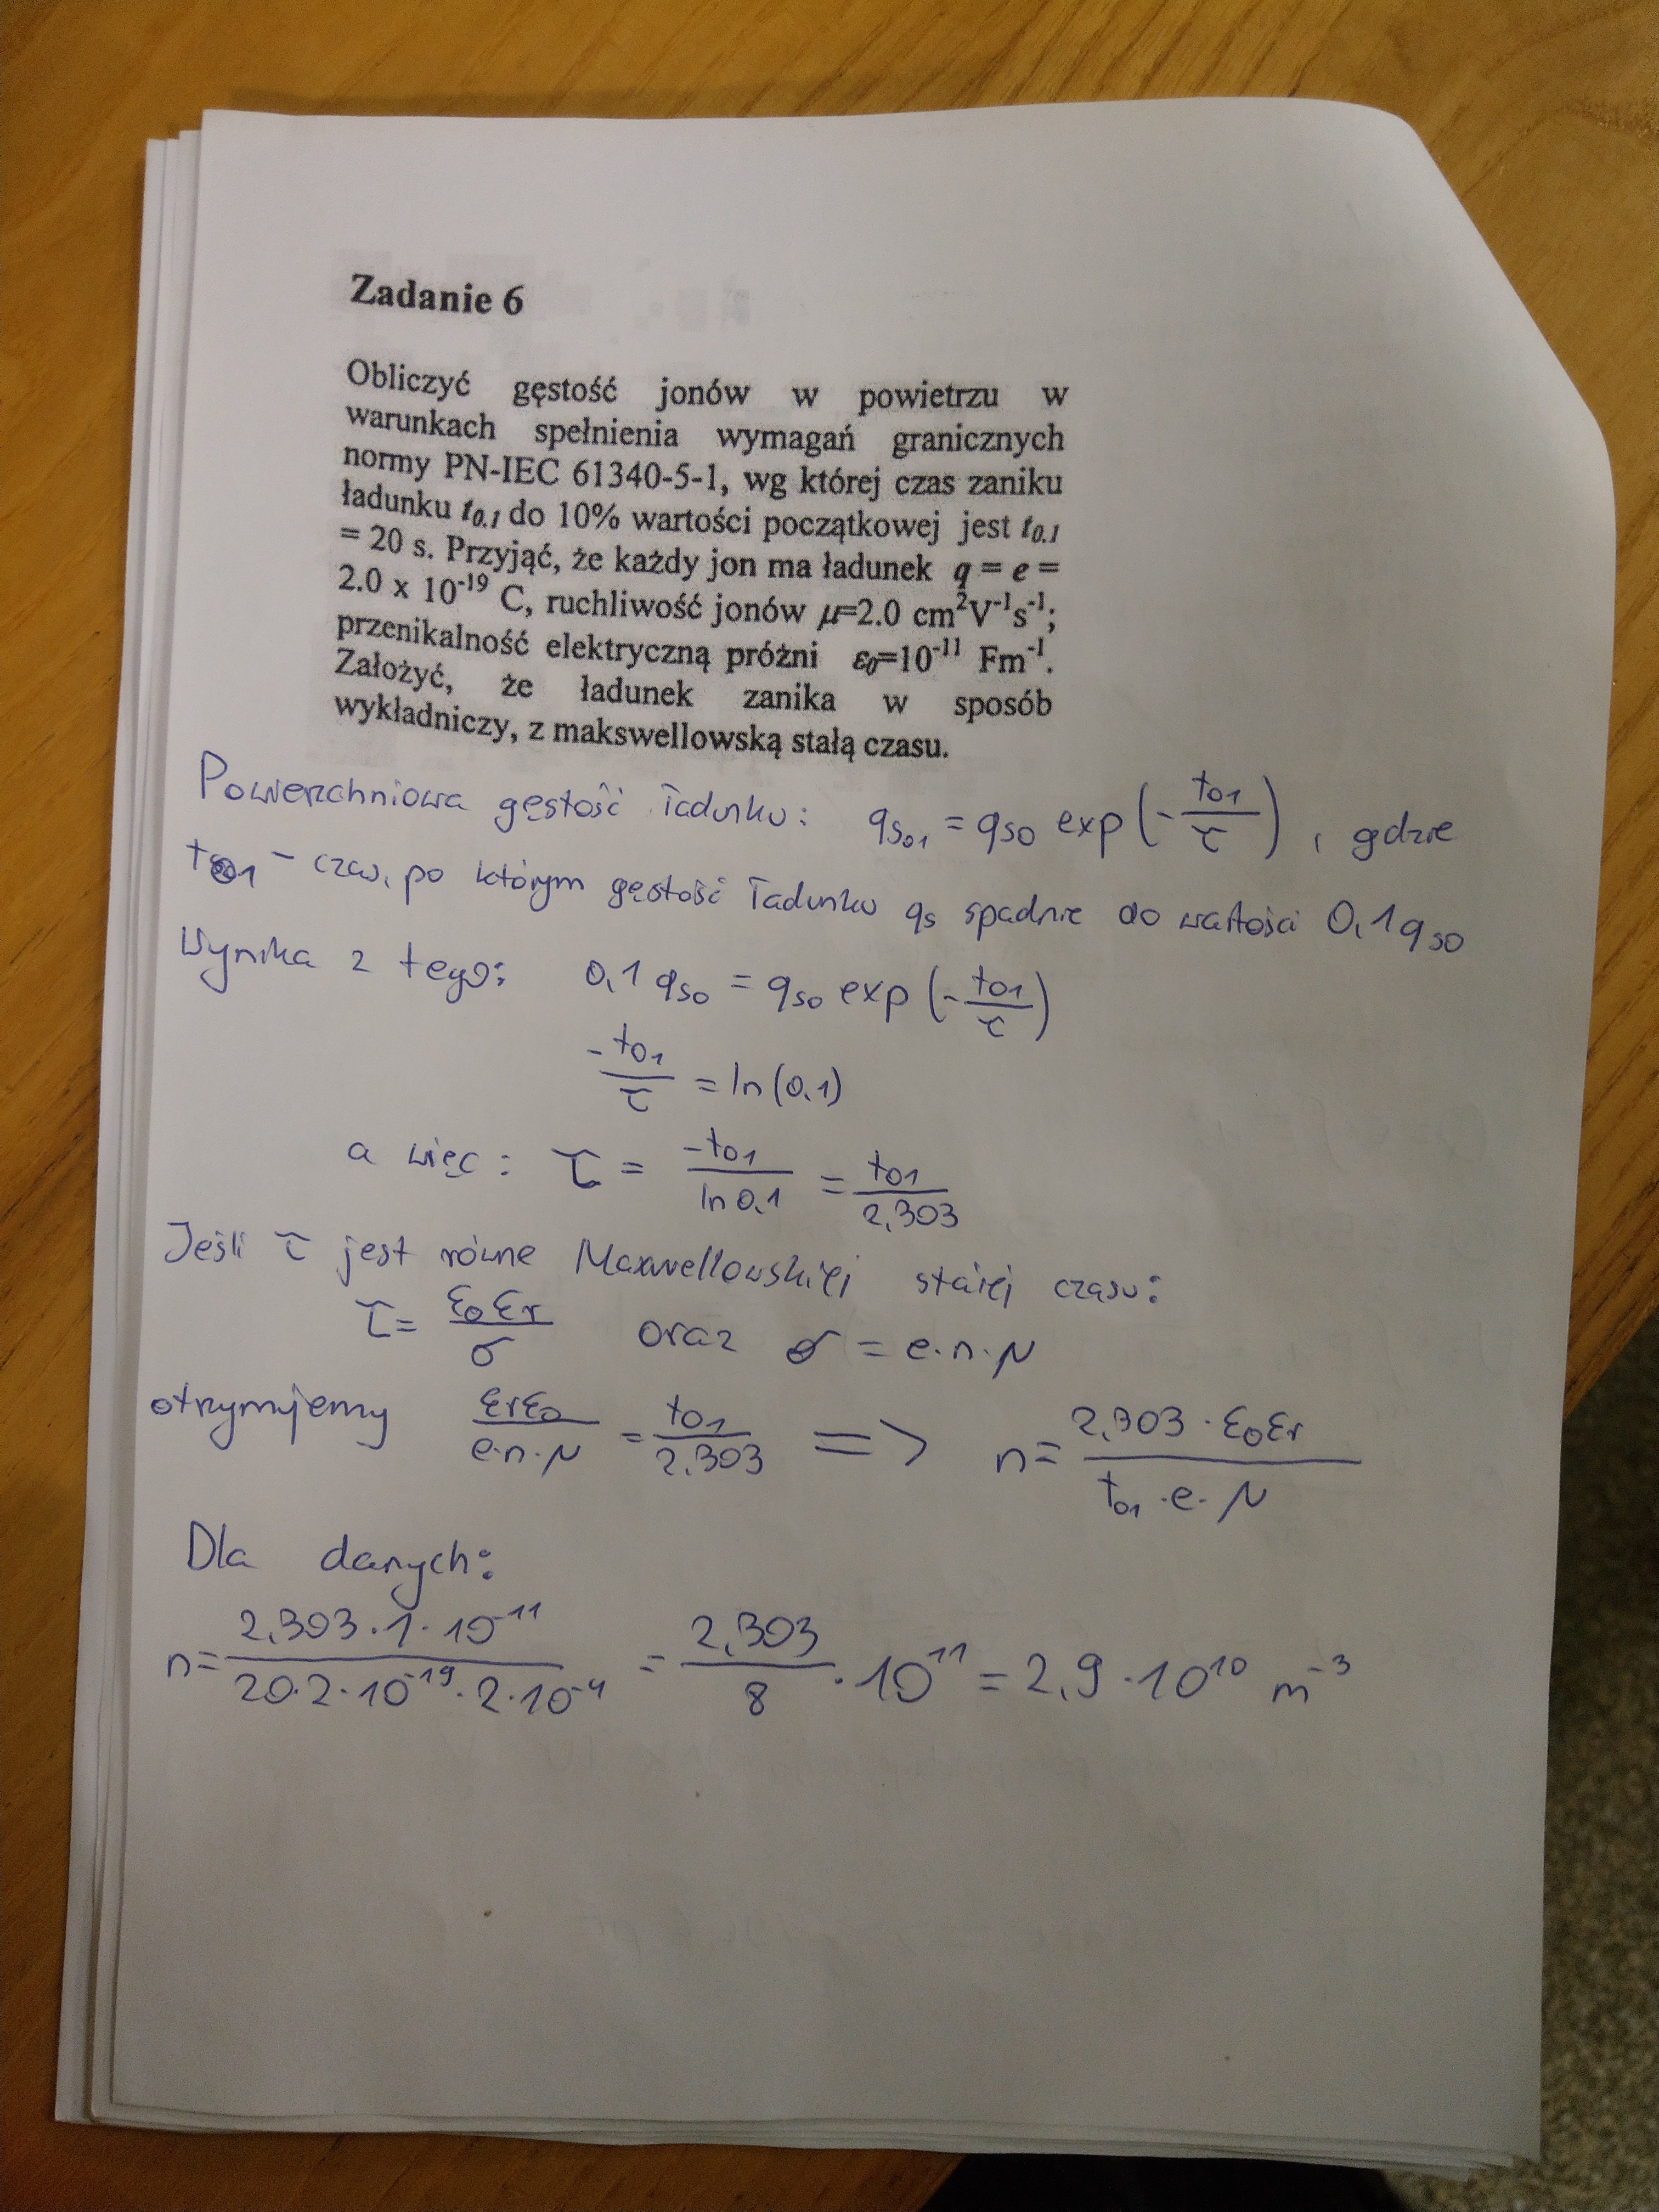 Zadanie 6
Obliczyć gęstość jonów w powietrzu w
warunkach spełnienia wymagań granicznych
normy PN-IEC 61340-5-1, wg której czas zaniku
ładunku t₀.₁ do 10% wartości początkowej jest t₀.₁
= 20 s. Przyjąć, że każdy jon ma ładunek q = e =
2.0 x 10⁻¹⁹ C, ruchliwość jonów μ=2.0 cm²V⁻¹s⁻¹;
przenikalność elektryczną próżni ε₀=10⁻¹¹ Fm⁻¹.
Założyć, że ładunek zanika w sposób
wykładniczy, z makswellowską stałą czasu.
Powierzchniowa gęstość ładunku: qs₀₁ = qs₀ exp(-t₀₁/τ), gdzie
t₀₁ - czas, po którym gęstość ładunku qs spadnie do wartości 0,1 qs₀
Wynika z tego: 0,1 qs₀ = qs₀ exp(-t₀₁/τ)
-t₀₁/τ = ln(0,1)
a więc: τ = -t₀₁/ln 0,1 = t₀₁/2,303
Jeśli τ jest równe Maxwellowskiej stałej czasu:
τ = ε₀εr/σ oraz σ = e·n·μ
otrzymujemy εrε₀/e·n·μ = t₀₁/2,303 => n = 2,303·ε₀εr/t₀₁·e·μ
Dla danych:
n = 2,303·1·10⁻¹¹/20·2·10⁻¹⁹·2·10⁻⁴ = 2,303/8·10¹¹ = 2,9·10¹⁰ m⁻³